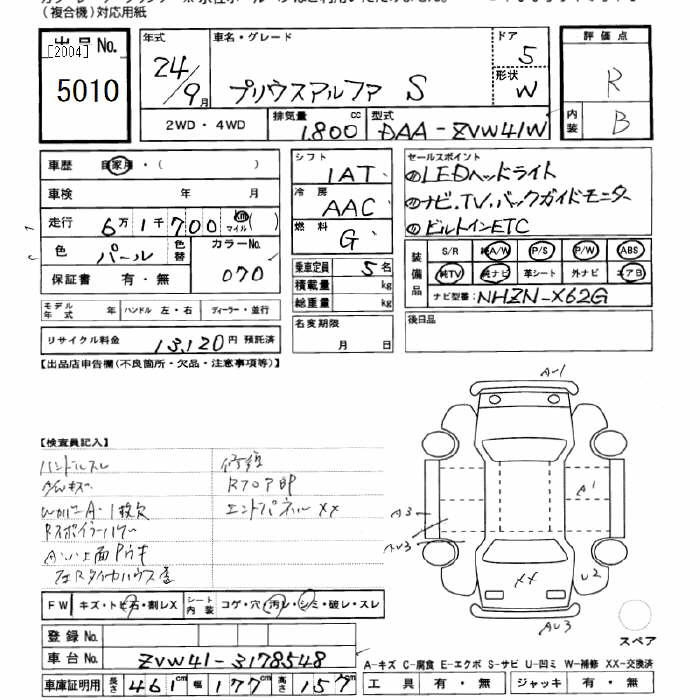 （複合機）対応用紙
出品No.
[2004]
5010
年式
24/9月
車名・グレード
プリウスアルファ S
ドア
5
形状
W
評価点
R
内装
B
2WD・4WD
排気量
1,800 cc
型式
DAA-ZVW41W
車歴 自家用・( )
車検 年 月
走行 6万1千700 km マイル ( )
色 パール 色替 カラーNo. 070
保証書 有・無
モデル年式 年 ハンドル 左・右 ディーラー・並行
リサイクル料金 13,120 円 預託済
シフト
IAT
冷房
AAC
燃料
G
乗車定員 5名
積載量 kg
総重量 kg
名変期限
月 日
セールスポイント
①LEDヘッドライト
②ナビ.TV.バックガイドモニター
③ビルトインETC
装備品
S/R 純A/W P/S P/W ABS
純TV 純ナビ 革シート 外ナビ エアB
ナビ型番: NHZN-X62G
後日品
【出品店申告欄(不良箇所・欠品・注意事項等)】
【検査員記入】
ハンドルスレ
修復
A-1
A1
A3
AU3
XX
U2
AU3
エンドパネル XX
FW キズ・トビ石・割レX シート内装 コゲ・穴・汚レ・シミ・破レ・スレ
スペア
登録No.
車台No. ZVW41-3178548
A-キズ C-腐食 E-エクボ S-サビ U-凹ミ W-補修 XX-交換済
車庫証明用 長さ 461cm 幅 177cm 高さ 157cm
工具 有・無 ジャッキ 有・無